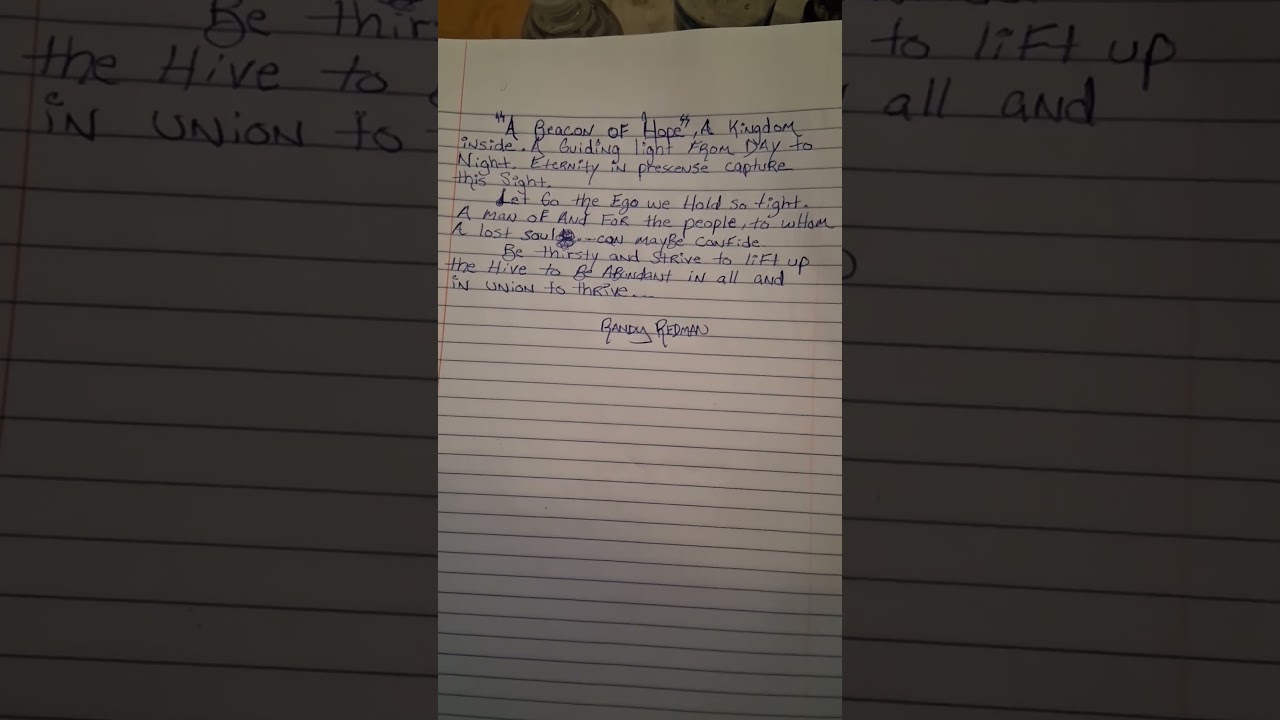 "A Beacon OF Hope", A Kingdom
inside. A Guiding light FROM DAY to
Night. Eternity in prescense capture
this Sight.
Let Go the Ego we Hold so tight.
A man OF And FOR the people, to whom
A lost soul ... can maybe confide.
Be thirsty and strive to lift up
the Hive to Be Abundant in all and
in union to thrive...
Randy Redman